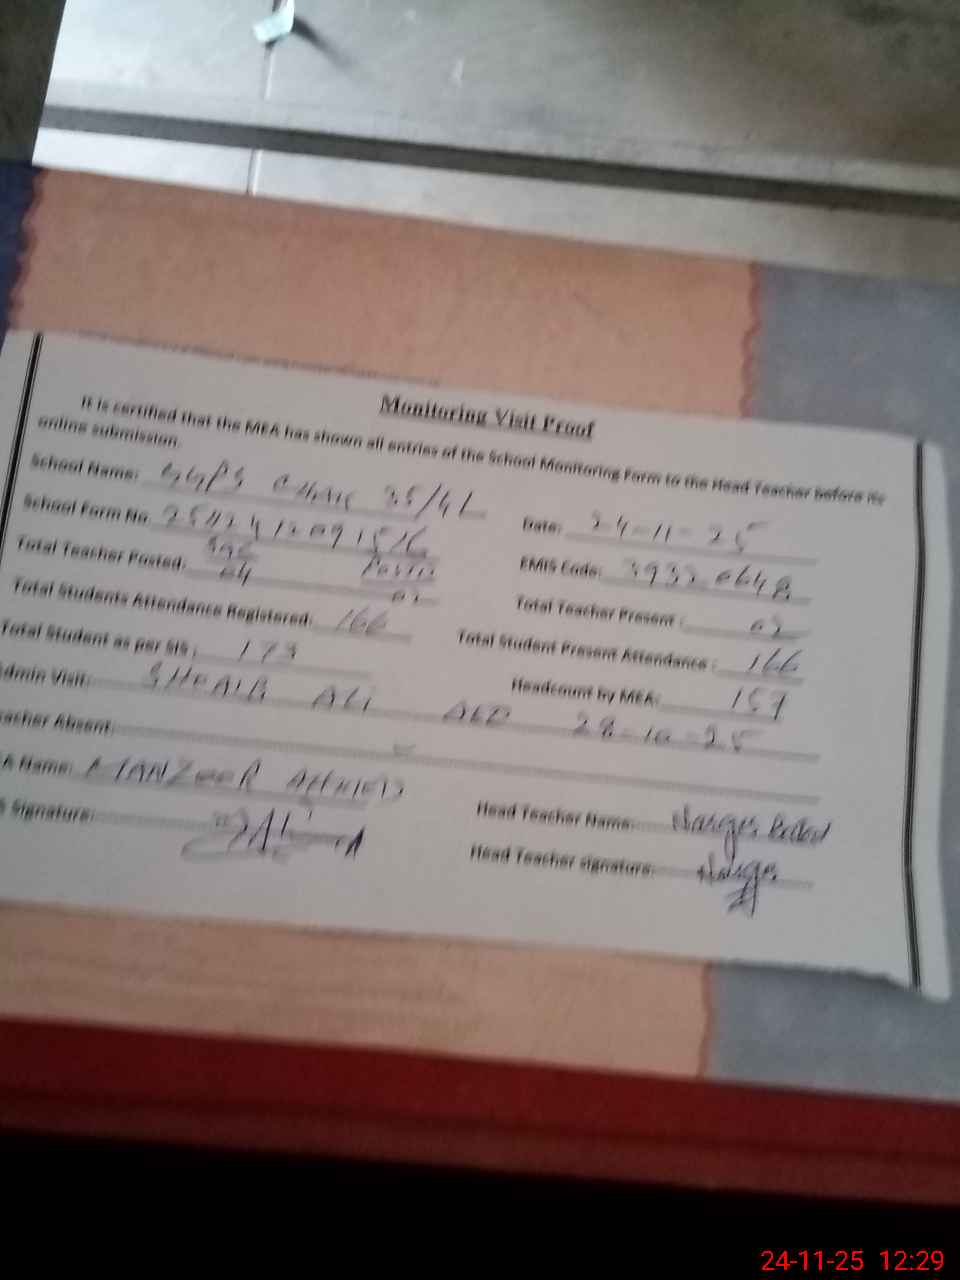 Monitoring Visit Proof
It is certified that the MEA has shown all entries of the School Monitoring Form to the Head Teacher before its
online submission.
School Name: GGPS CHAK 35/4L
Date: 24-11-25
School Form No.
EMIS Code:
Total Teacher Posted: 04
Total Teacher Present: 02
Total Students Attendance Registered: 166
Total Student Present Attendance: 166
Total Student as per SIS: 173
Headcount by MEA: 157
Admin Visit: SHOAIB ALI AEO 28-10-25
Teacher Absent:
A Name: MANZOOR AHMED
Head Teacher Name: Narges
Signature:
Head Teacher signature: Narges
24-11-25 12:29